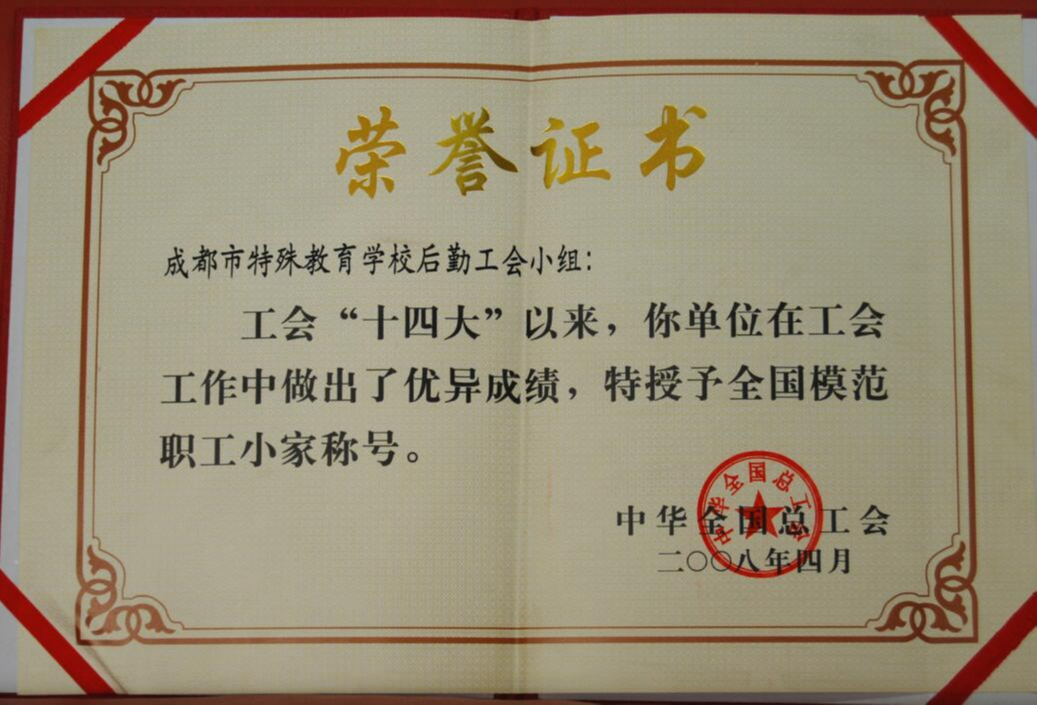 荣誉证书
成都市特殊教育学校后勤工会小组：
工会“十四大”以来，你单位在工会
工作中做出了优异成绩，特授予全国模范
职工小家称号。
中华全国总工会
二〇〇八年四月
中华全国总工会